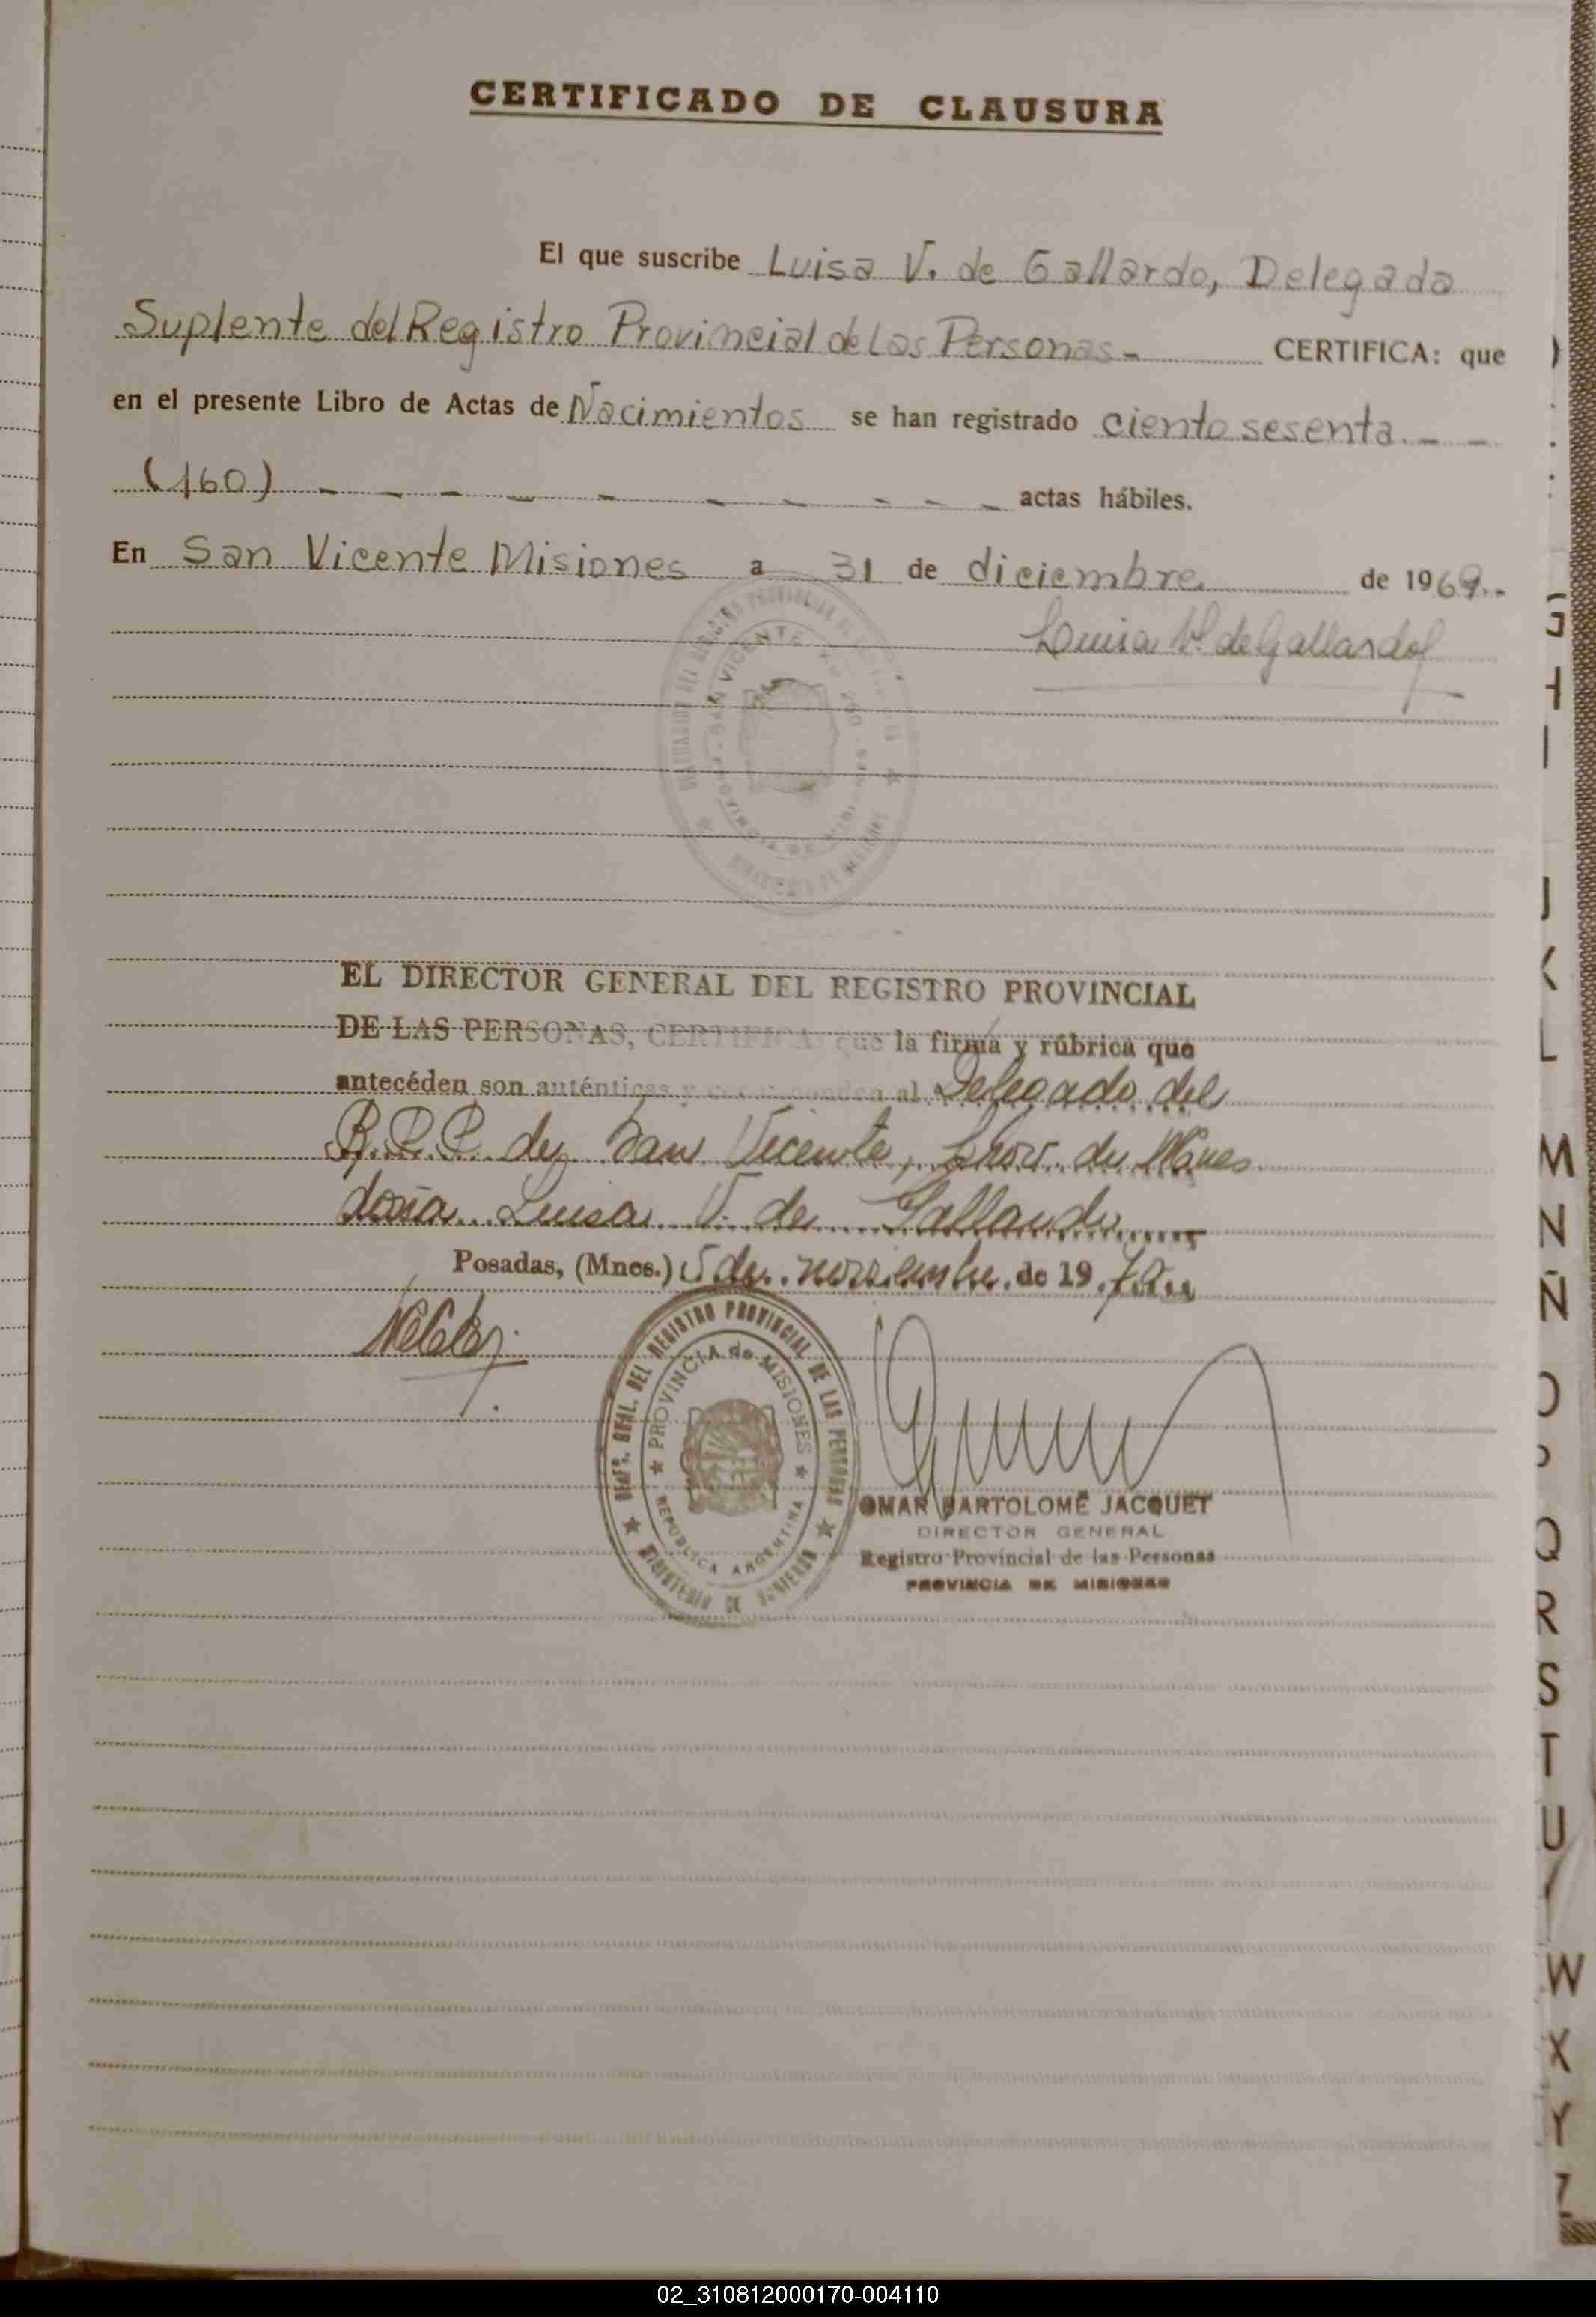 CERTIFICADO DE CLAUSURA
El que suscribe Luisa V. de Gallardo, Delegada
Suplente del Registro Provincial de Las Personas - CERTIFICA: que
en el presente Libro de Actas de Nacimientos se han registrado ciento sesenta. - -
(160) - - - - - - - - - - actas hábiles.
En San Vicente Misiones a 31 de diciembre de 1969.-
Luisa V. de Gallardo
SAN VICENTE
EL DIRECTOR GENERAL DEL REGISTRO PROVINCIAL
DE LAS PERSONAS, CERTIFICA que la firma y rúbrica que
antecéden son auténticas y corresponden al Delegado del
R.P.P. de San Vicente, Prov. de Mnes
doña Luisa V. de Gallardo
Posadas, (Mnes.) 5 de noviembre de 19
DIREC. GRAL. DEL REGISTRO PROVINCIAL DE LAS PERSONAS
MINISTERIO DE GOBIERNO
PROVINCIA de MISIONES
REPUBLICA ARGENTINA
OMAR BARTOLOMÉ JACQUET
DIRECTOR GENERAL
Registro Provincial de las Personas
PROVINCIA DE MISIONES
J
K
L
M
N
Ñ
O
P
Q
R
S
T
U
V
W
X
Y
Z
02_310812000170-004110